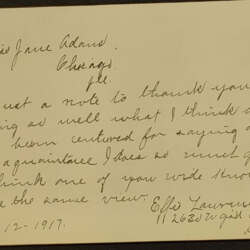 ss Jane Adams.
Chicago
Ill
ust a note to thank you
ing so well what I think a
been censured for saying
aquaintance I does so much g
think one of you wide
e the same view.
Effie Lawren
12-1917.